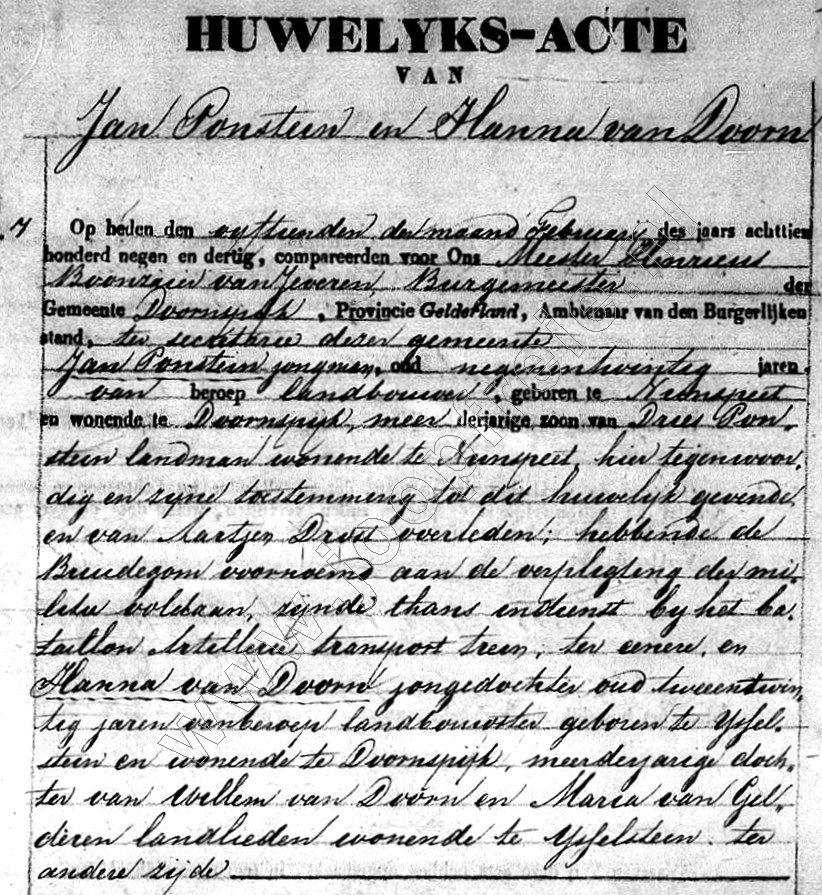 HUWELYKS-ACTE
VAN
Jan Ponstein en Hanna van Doorn
7 Op heden den vyftienden der maand Februarij des jaars achttien
honderd negen en dertig, compareerden voor Ons Meester Henricus
Boonzaier van Jeveren, Burgemeester der
Gemeente Doornspijk, Provincie Gelderland, Ambtenaar van den Burgerlijken
stand, ter secretarie dezer gemeente
Jan Ponstein jongman, oud negenentwintig jaren
van beroep landbouwer, geboren te Nunspeet
en wonende te Doornspijk, meer derjarige zoon van Dries Pon-
stein landman wonende te Nunspeet, hier tegenwoor-
dig en zijne toestemming tot dit huwelijk gevende
en van Aartjen Drost overleden; hebbende de
Bruidegom voornoemd aan de verpligting der mi-
litie voldaan, zijnde thans indienst by het ba-
taillon Artillerie transport trein, ter eenere, en
Hanna van Doorn jongedochter oud tweeentwin-
tig jaren vanberoep landbouwster geboren te Yssel-
stein en wonende te Doornspijk, meerderjarige doch-
ter van Willem van Doorn en Maria van Gel-
deren landlieden wonende te Ysselstein ter
andere zijde